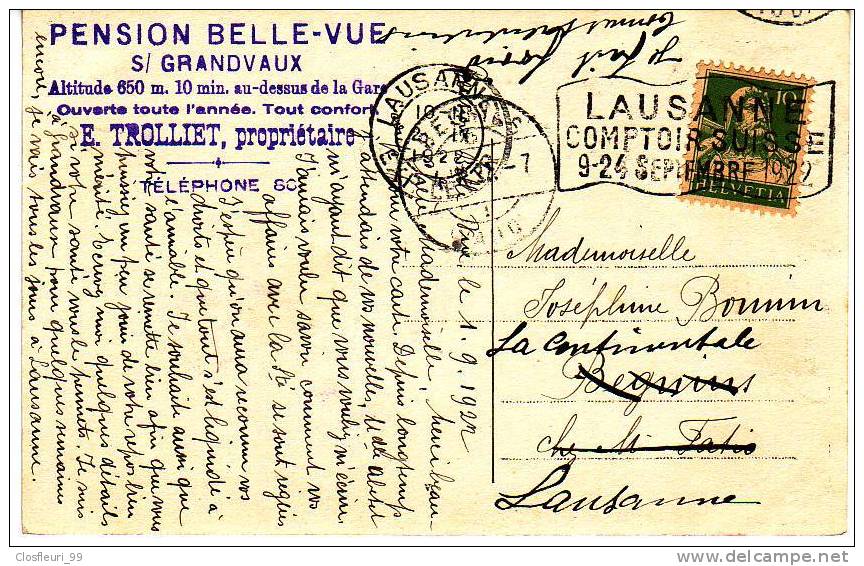 PENSION BELLE-VUE
S/ GRANDVAUX
Altitude 650 m. 10 min. au-dessus de la Gare
Ouverte toute l'année. Tout confort
E. TROLLIET, propriétaire
TÉLÉPHONE 80
LAUSANNE
LAUSANNE
COMPTOIR SUISSE
9-24 SEPTEMBRE 1922
10
HELVETIA
Mademoiselle
Joséphine Bonnin
La Continentale
Begnins
chez Mr Fatio
Lausanne
le 1. 9. 1922
Mademoiselle, merci beau-
coup de votre carte. Depuis longtemps
j'attendais de vos nouvelles, Mlle
m'ayant dit que vous vouliez m'écrire.
J'aurais voulu savoir comment vos
affaires avec la Sté se sont réglées
J'espère qu'on aura reconnu vos
droits et que tout s'est liquidé à
l'amiable. Je souhaite aussi que
votre santé se remette bien afin que vous
puissiez un peu jouir de votre repos bien
mérité. Envoyez moi quelques détails
si votre santé vous le permet. Je suis
à Grandvaux pour quelques semaines
encore, je vais tous les jours à Lausanne.
Closfleuri_99
delcampe.net